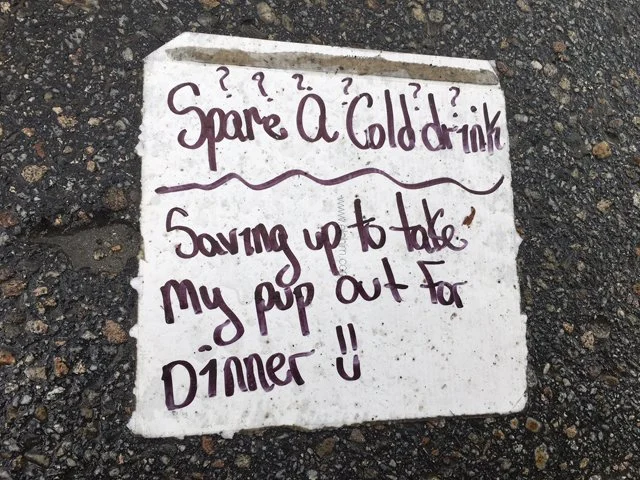 ? ? ? ? ? ?
Spare A Cold drink
Saving up to take
My pup out For
Dinner !!